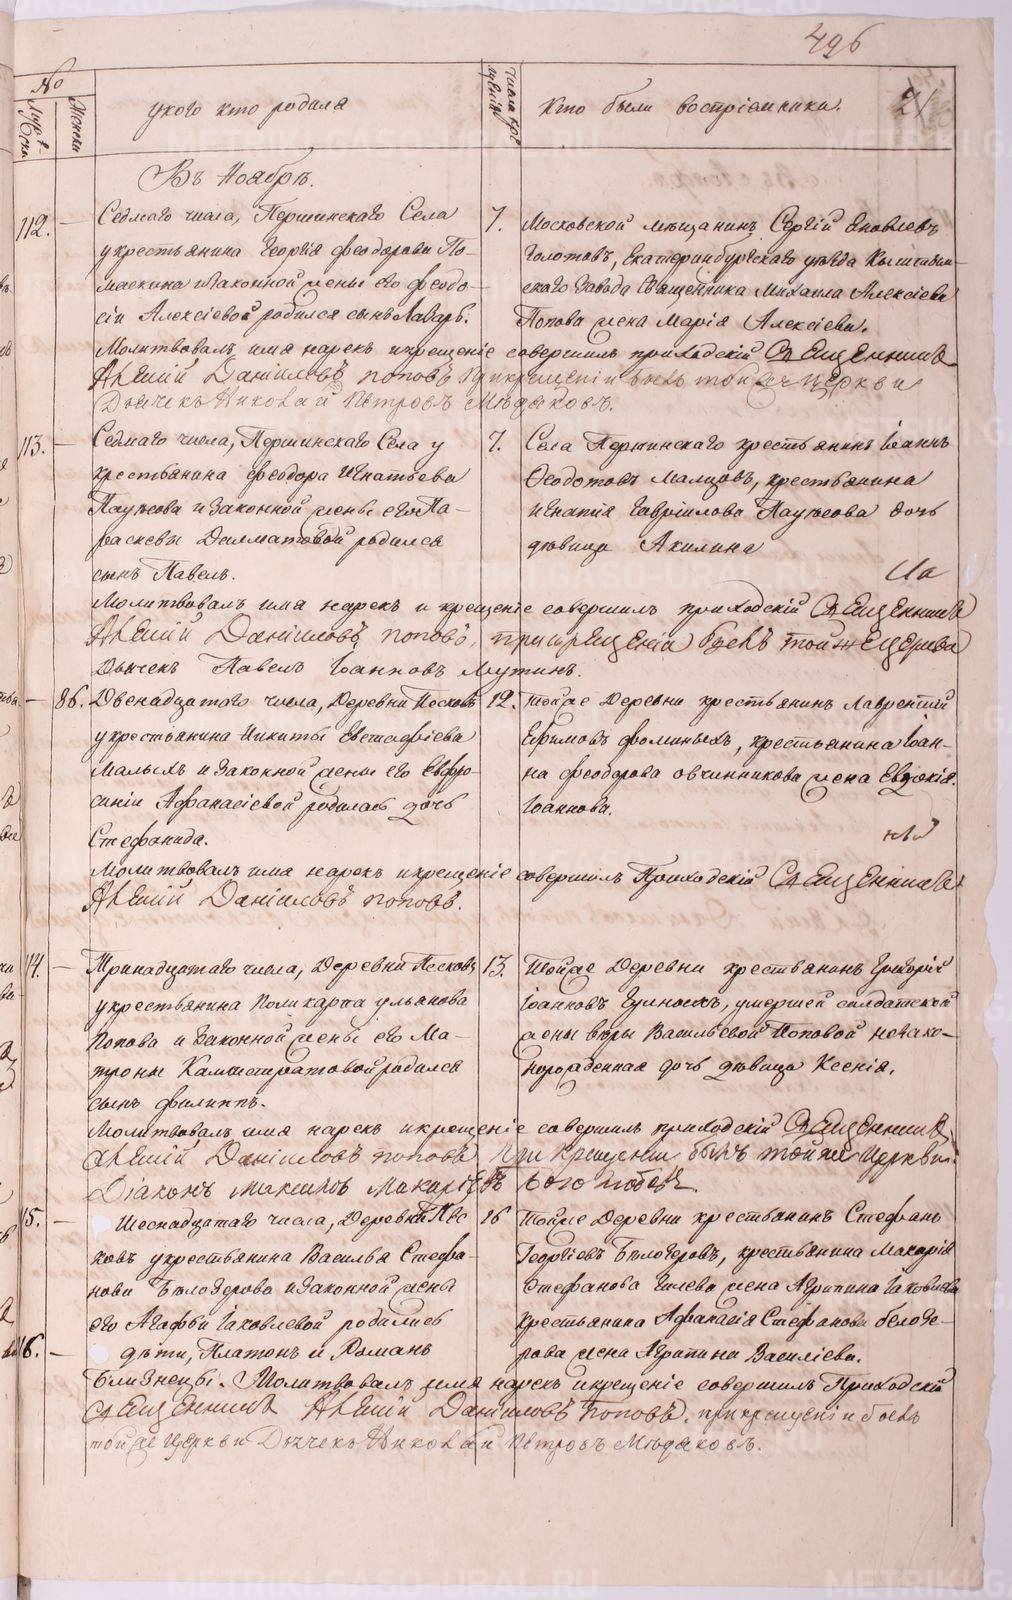 496
№
Мужеска
Женска
у кого кто родился
число крещенія
кто были воспріемники.
21
Въ Ноябрѣ.
112. — Седмаго числа, Першинскаго Села
у крестьянина Георгія Феодорова По-
маскина и законной жены его Феодо-
сіи Алексіевой родился сынъ Лазарь.
7. Московской мѣщанинъ Сергій Яковлевъ
Золотовъ, Екатеринбургскаго уѣзда
скаго завода Священника Михаила Алексіева
Попова жена Марія Алексіева.
Молитвовалъ имя нарекъ и крещеніе совершилъ приходскій Священникъ
Даніиловъ Поповъ При крещеніи былъ той же Церкви
Дьячекъ Николай Петровъ Мѣдяковъ.
113. — Седмаго числа, Першинскаго Села у
крестьянина Феодора Игнатьева
Паужова и законной жены его Па-
раскевы Далматовой родился
сынъ Павелъ.
7. Села Першинскаго крестьянинъ Іоаннъ
Феодотовъ Малцовъ, крестьянина
Игнатія Гавріилова Паужова дочь
дѣвица Акилина
Молитвовалъ имя нарекъ и крещеніе совершилъ приходскій Священникъ
Даніиловъ Поповъ, при крещеніи былъ той же Церкви
Дьячекъ Павелъ Іоанновъ Мутинъ.
— 86. Двенадцатого числа, Деревни Песковъ
у крестьянина Никиты Евстафіева
Малыхъ и законной жены его Евфро-
синіи Афанасіевой родилась дочь
Стефанида.
12. Той же Деревни крестьянинъ Лаврентій
Ефимовъ Фоминыхъ, крестьянина Іоан-
на Феодорова Овчинникова жена Евдокія
Іоаннова.
Молитвовалъ имя нарекъ и крещеніе совершилъ Приходскій Священникъ
Даніиловъ Поповъ.
114. — Тринадцатаго числа, Деревни Песковъ
у крестьянина Поликарпа Ульянова
Попова и законной жены его Ма-
троны Каллистратовой родился
сынъ Филиппъ.
13. Той же Деревни крестьянинъ Григорій
Іоанновъ, умершей солдатской
жены Вѣры Васильевой Поповой незако-
норожденная дочь дѣвица Ксенія.
Молитвовалъ имя нарекъ и крещеніе совершилъ приходскій Священникъ
Даніиловъ Поповъ При крещеніи былъ той же Церкви
Діаконъ Макаріевъ
15. — Шеснадцатаго числа, Деревни Пес
ковъ у крестьянина Василья Стефа-
нова Бѣлозерова и законной жены
его Агафьи Іаковлевой родились
16. — дѣти, Платонъ и Романъ
16 Той же Деревни крестьянинъ Стефанъ
Георгіевъ Бѣлозеровъ, крестьянина Макарія
Стефанова Гилева жена Агрипина Іаковлева
крестьянина Афанасія Стефанова Белозе-
рова жена Агрипина Василіева.
Близнецы. Молитвовалъ имя нарекъ и крещеніе совершилъ Приходскій
Священникъ Даніиловъ Поповъ. при крещеніи былъ
той же Церкви Дьячекъ Николай Петровъ Мѣдяковъ.
METRIKI.GASO-URAL.RU